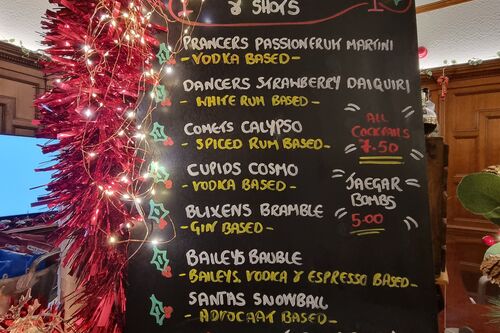 & SHOTS
PRANCERS PASSIONFRUIT MARTINI
- VODKA BASED -
DANCERS STRAWBERRY DAIQUIRI
- WHITE RUM BASED -
COMETS CALYPSO
- SPICED RUM BASED -
ALL
COCKTAILS
7.50
CUPIDS COSMO
- VODKA BASED -
JAEGAR
BOMBS
5.00
BLIXENS BRAMBLE
- GIN BASED -
BAILEYS BAUBLE
- BAILEYS, VODKA & ESPRESSO BASED -
SANTAS SNOWBALL
- ADVOCAAT BASED -